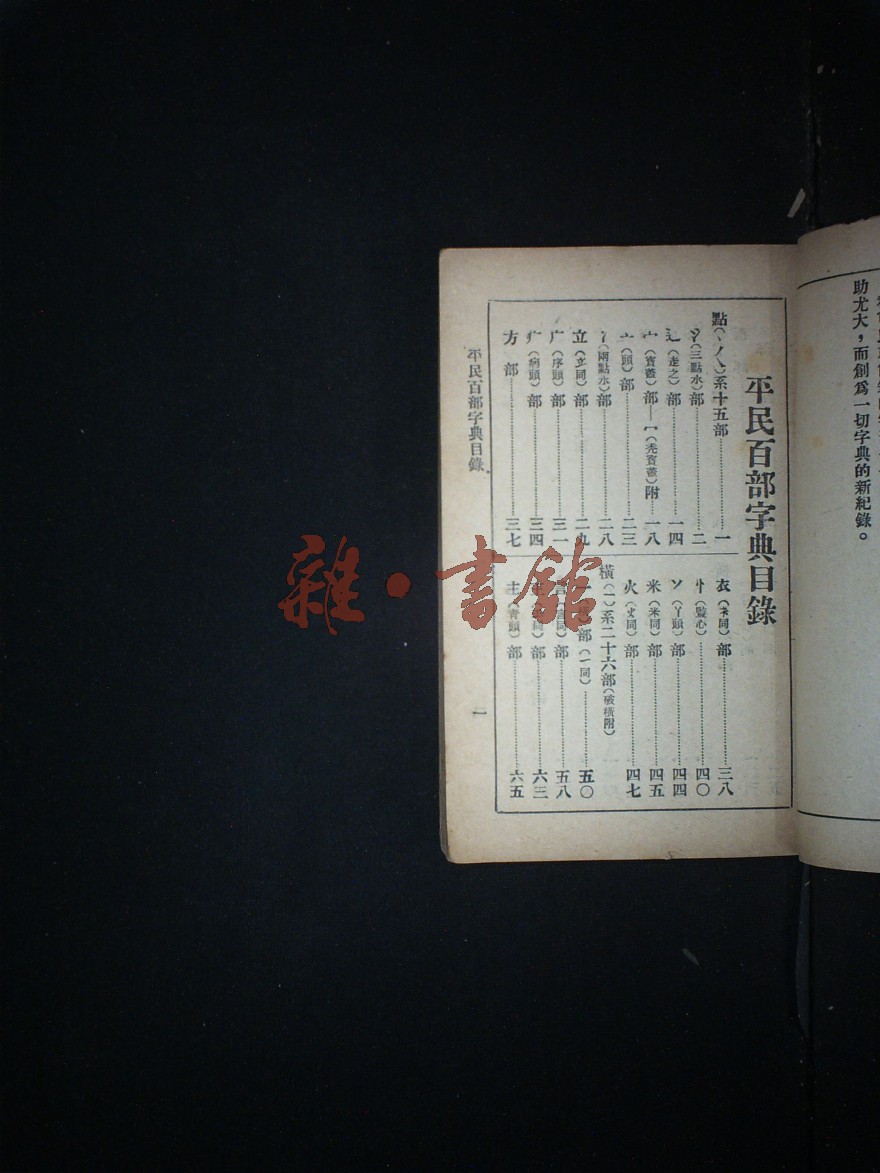 助尤大，而創爲一切字典的新紀錄。
平民百部字典目錄
點(丶丿乀)系十五部……一
氵(三點水)部……二
辶(走之)部……一四
宀(寶蓋)部—冖(禿寶蓋)附……一八
亠(頭)部……二三
冫(兩點水)部……二八
立(立同)部……二九
广(序頭)部……三一
疒(病頭)部……三四
方部……三七
衣(衤同)部……三八
忄(豎心)……四〇
丷(丫頭)部……四四
米(米同)部……四五
火(灬同)部……四七
橫(一)系二十六部(破橫附)
部(一同)……五〇
言 部……五八
部……六三
龶(青頭)部……六五
平民百部字典目錄
一
雜·書館